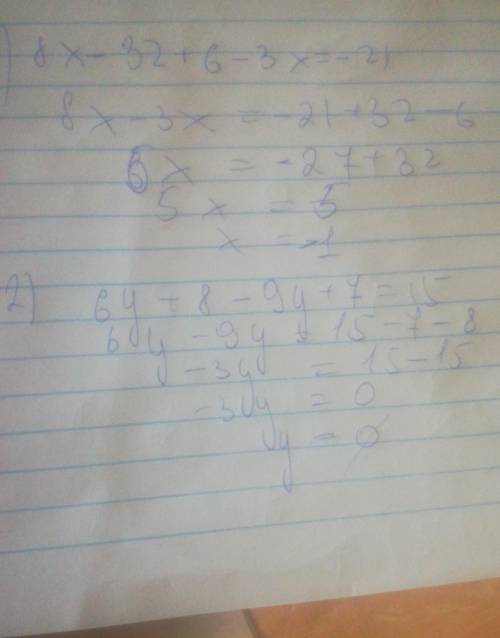 ) 8x - 32 + 6 - 3x = -21
8x - 3x = -21 + 32 - 6
5x = -27 + 32
5x = 5
x = 1
2) 6y + 8 - 9y + 7 = 15
6y - 9y = 15 - 7 - 8
-3y = 15 - 15
-3y = 0
y = 0